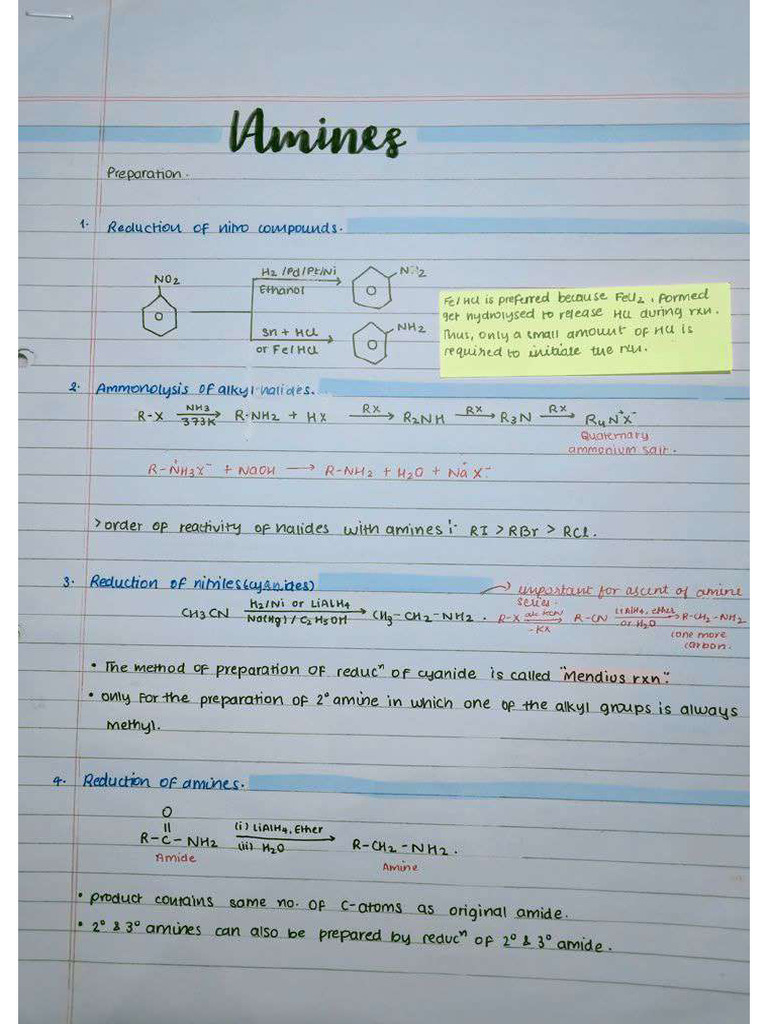 Amines
Preparation.
1. Reduction of nitro compounds.
NO2
H2/Pd/Pt/Ni
Ethanol
NH2
Sn + HCl
or Fe/HCl
NH2
Fe/HCl is preferred because FeCl2, formed
get hydrolysed to release HCl during rxn.
Thus, only a small amount of HCl is
required to initiate the rxn.
2. Ammonolysis of alkyl halides.
R-X NH3 373K → R-NH2 + HX RX → R2NH RX → R3N RX → R4N⁺X⁻
Quaternary
ammonium salt.
R-N⁺H3X⁻ + NaOH → R-NH2 + H2O + Na⁺X⁻
> order of reactivity of halides with amines :- RI > RBr > RCl.
3. Reduction of nitriles (cyanides)
→ important for ascent of amine
series.
CH3CN H2/Ni or LiAlH4 Na(Hg)/C2H5OH → CH3-CH2-NH2. R-X alc KCN -KX → R-CN LiAlH4, ether or H2O → R-CH2-NH2
(one more
carbon.
• The method of preparation of reducⁿ of cyanide is called "Mendius rxn".
• only for the preparation of 2° amine in which one of the alkyl groups is always
methyl.
4. Reduction of amines.
O
R-C-NH2 (i) LiAlH4, Ether (ii) H2O → R-CH2-NH2.
Amide
Amine
• product contains same no. of C-atoms as original amide.
• 2° & 3° amines can also be prepared by reducⁿ of 2° & 3° amide.